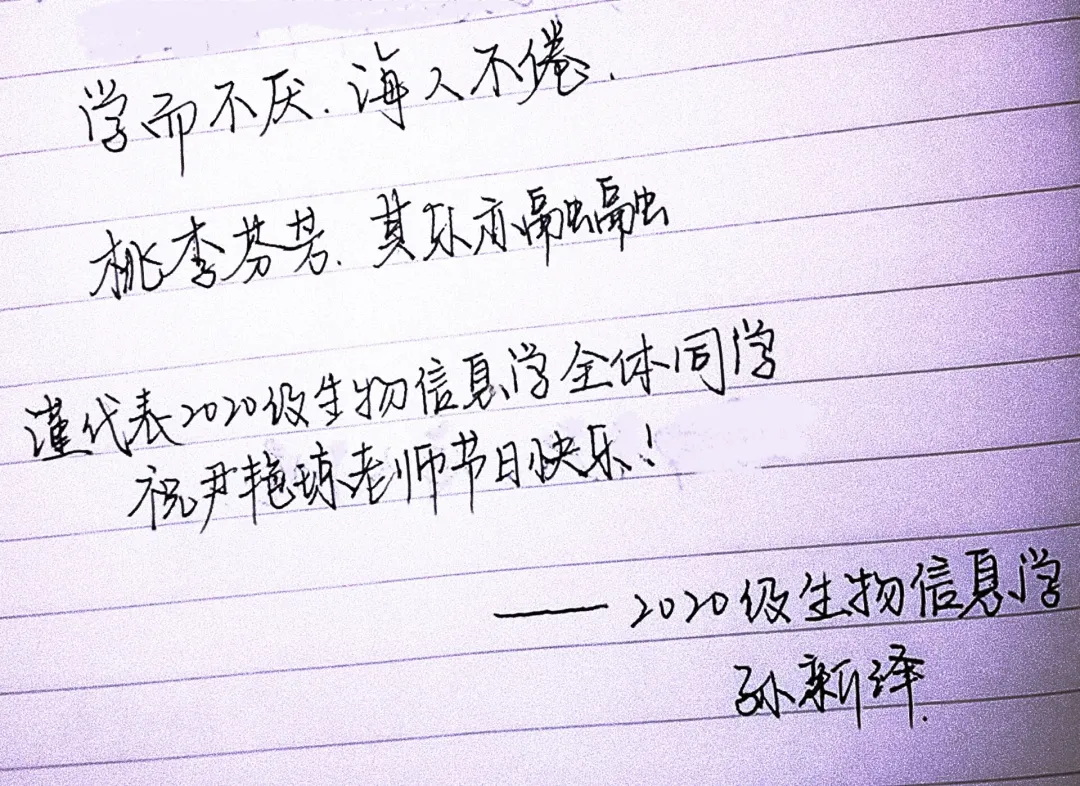 学而不厌.海人不倦.
桃李芬芳.其乐亦融融
谨代表2020级生物信息学全体同学
祝尹艳琼老师节日快乐!
——2020级生物信息学
孙新泽.